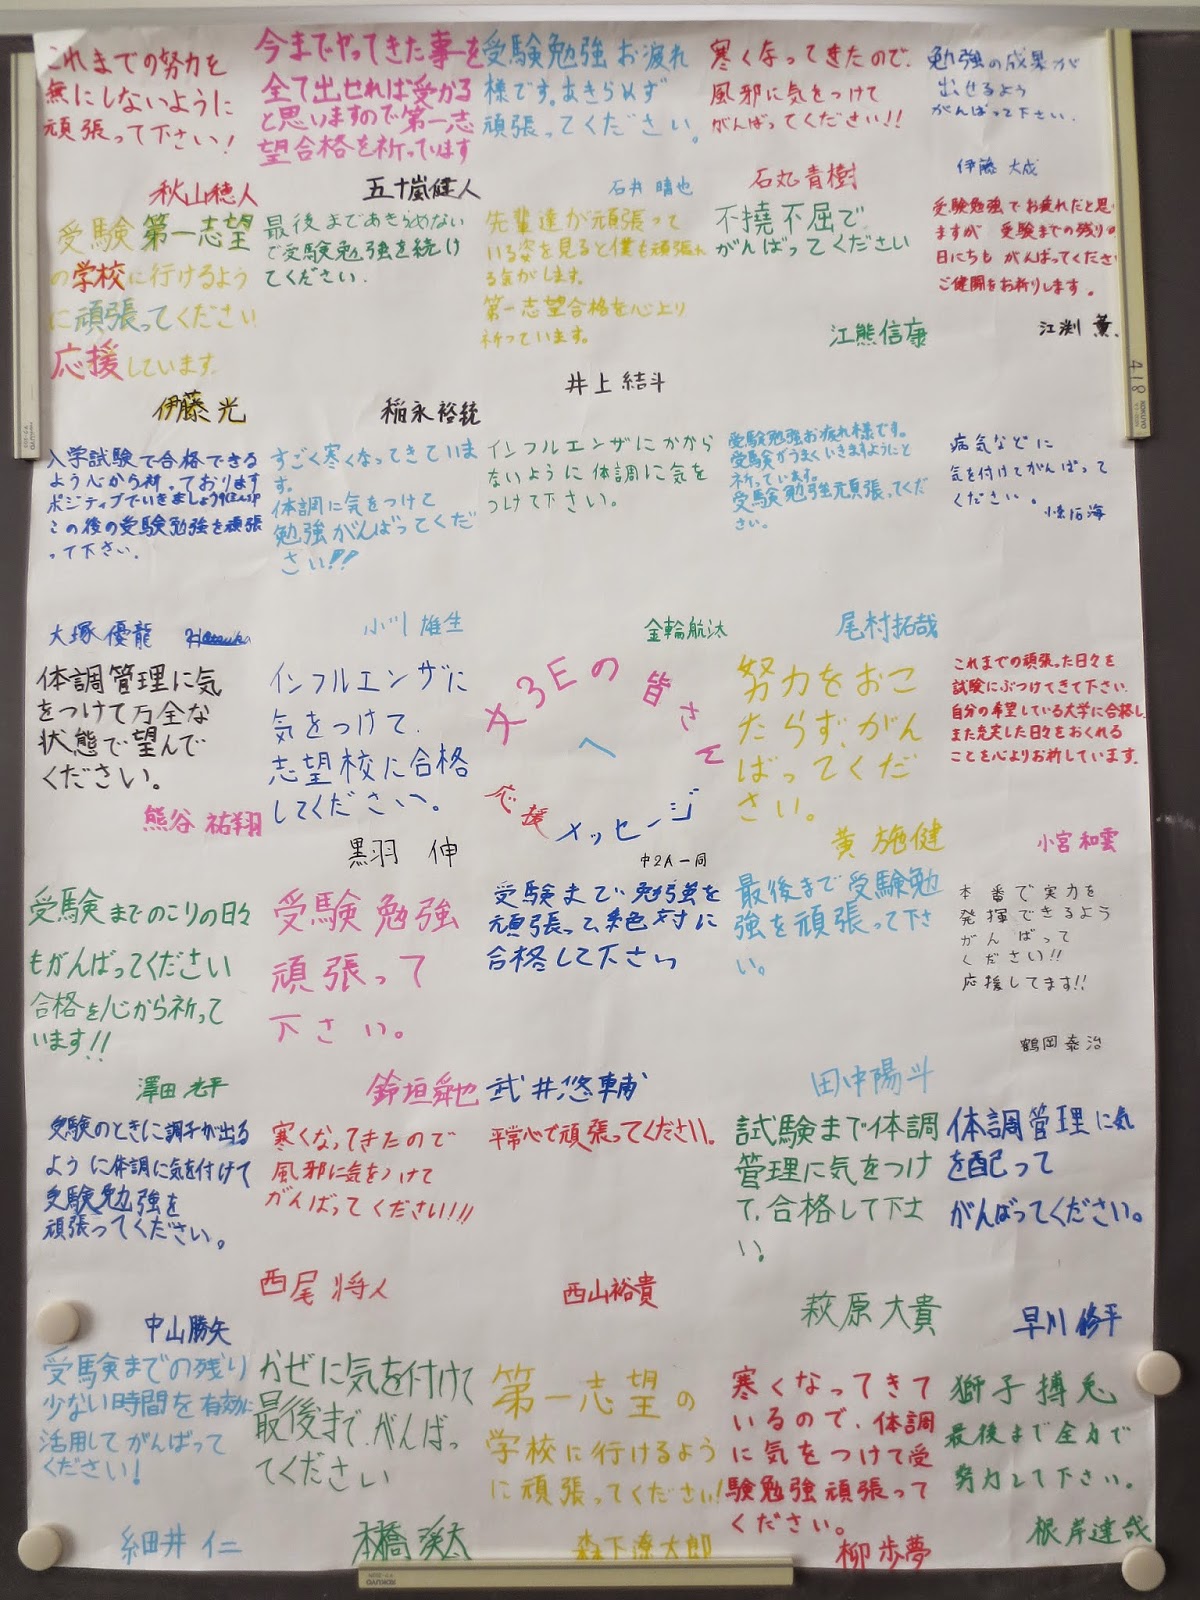 これまでの努力を
無にしないように
頑張って下さい!
秋山穂人
今までやってきた事を
全て出せれば受かる
と思いますので第一志
望合格を祈っています
五十嵐健人
受験勉強お疲れ
様です。あきらめず
頑張ってください。
石井晴也
寒くなってきたので、
風邪に気をつけて
がんばってください!!
石丸青樹
勉強の成果が
出せるよう
がんばって下さい。
伊藤大成
受験第一志望
の学校に行けるよう
に頑張ってください
応援しています。
伊藤光
最後まであきらめない
で受験勉強を続け
てください。
稲永裕統
先輩達が頑張って
いる姿を見ると僕も頑張れ
る気がします。
第一志望合格を心より
祈っています。
井上結斗
不撓不屈で
がんばってください
江熊信康
受験勉強でお疲れだと思い
ますが 受験までの残りの
日にちも がんばってくださ
ご健闘をお祈りします。
江渕薫
入学試験で合格できる
よう心から祈っております
ポジティブでいきましょう
この後の受験勉強を頑張
って下さい。
大塚優龍
すごく寒くなってきていま
す。
体調に気をつけて
勉強がんばってくだ
さい!!
小川雄生
インフルエンザにかから
ないように体調に気を
つけて下さい。
金輪航汰
受験勉強お疲れ様です。
受験がうまくいきますようにと
祈っています。
受験勉強元頑張ってくだ
さい。
尾村拓哉
病気などに
気を付けてがんばって
ください。
体調管理に気
をつけて万全な
状態で望んで
ください。
熊谷祐翔
インフルエンザに
気をつけて、
志望校に合格
してください。
黒羽 伸
女3Eの皆さん
へ
応援メッセージ
中2A一同
努力をおこ
たらず、がん
ばってくだ
さい。
黄施健
これまでの頑張った日々を
試験にぶつけてきて下さい。
自分の希望している大学に合格し、
また充実した日々をおくれる
ことを心よりお祈しています。
小宮和雲
受験までのこりの日々
もがんばってください
合格を心から祈って
います!!
澤田光平
受験勉強
頑張って
下さい。
鈴垣舜也
受験まで勉強を
頑張って、絶対に
合格して下さい
武井悠輔
最後まで受験勉
強を頑張って下さ
い。
田中陽斗
本番で実力を
発揮できるよう
がんばって
ください!!
応援してます!!
鶴岡泰治
受験のときに調子が出る
ように体調に気を付けて
受験勉強を
頑張ってください。
中山勝矢
寒くなってきたので
風邪に気をつけて
がんばってください!!!
西尾将人
平常心で頑張ってください。
西山裕貴
試験まで体調
管理に気をつけ
て、合格して下さ
い。
萩原大貴
体調管理に気
を配って
がんばってください。
早川修平
受験までの残り
少ない時間を有効に
活用してがんばって
ください!
細井仁
かぜに気を付けて
最後まで、がんばっ
てください
本橋渓太
第一志望の
学校に行けるよう
に頑張ってください!
森下遼太郎
寒くなってきて
いるので、体調
に気をつけて受
験勉強頑張って
ください。
柳歩夢
獅子搏兎
最後まで全力で
努力して下さい。
根岸達哉
418
KOKUYO